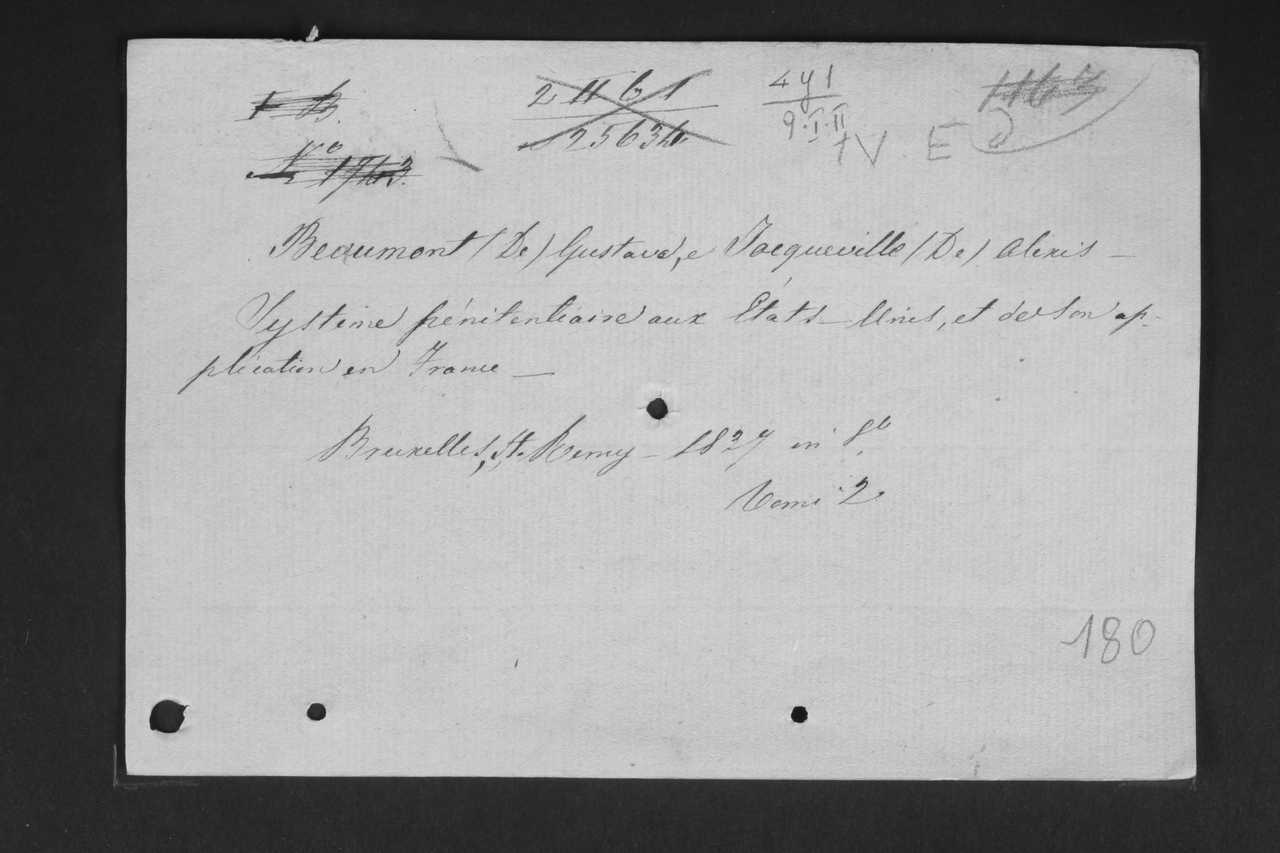 1 B.
2 11 6 1
25634
4 y 1
9.I.II
IV E
1163
Nº 1743.
Beaumont (De) Gustave, e Tocqueville (De) Alexis –
Système pénitentiaire aux États-Unis, et de son ap-
plication en France —
Bruxelles, St. Remy – 1837 in 8º
Tomi 2
180